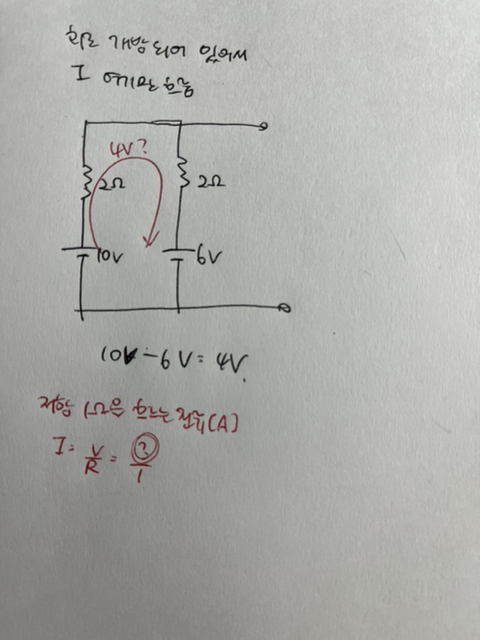 회로 개방되어 있어서
I 이녀리로 흐름
4V?
2Ω 2Ω
10V 6V
10V - 6V = 4V
저항 1Ω을 흐르는 전류(A)
I = V/R = ?/1